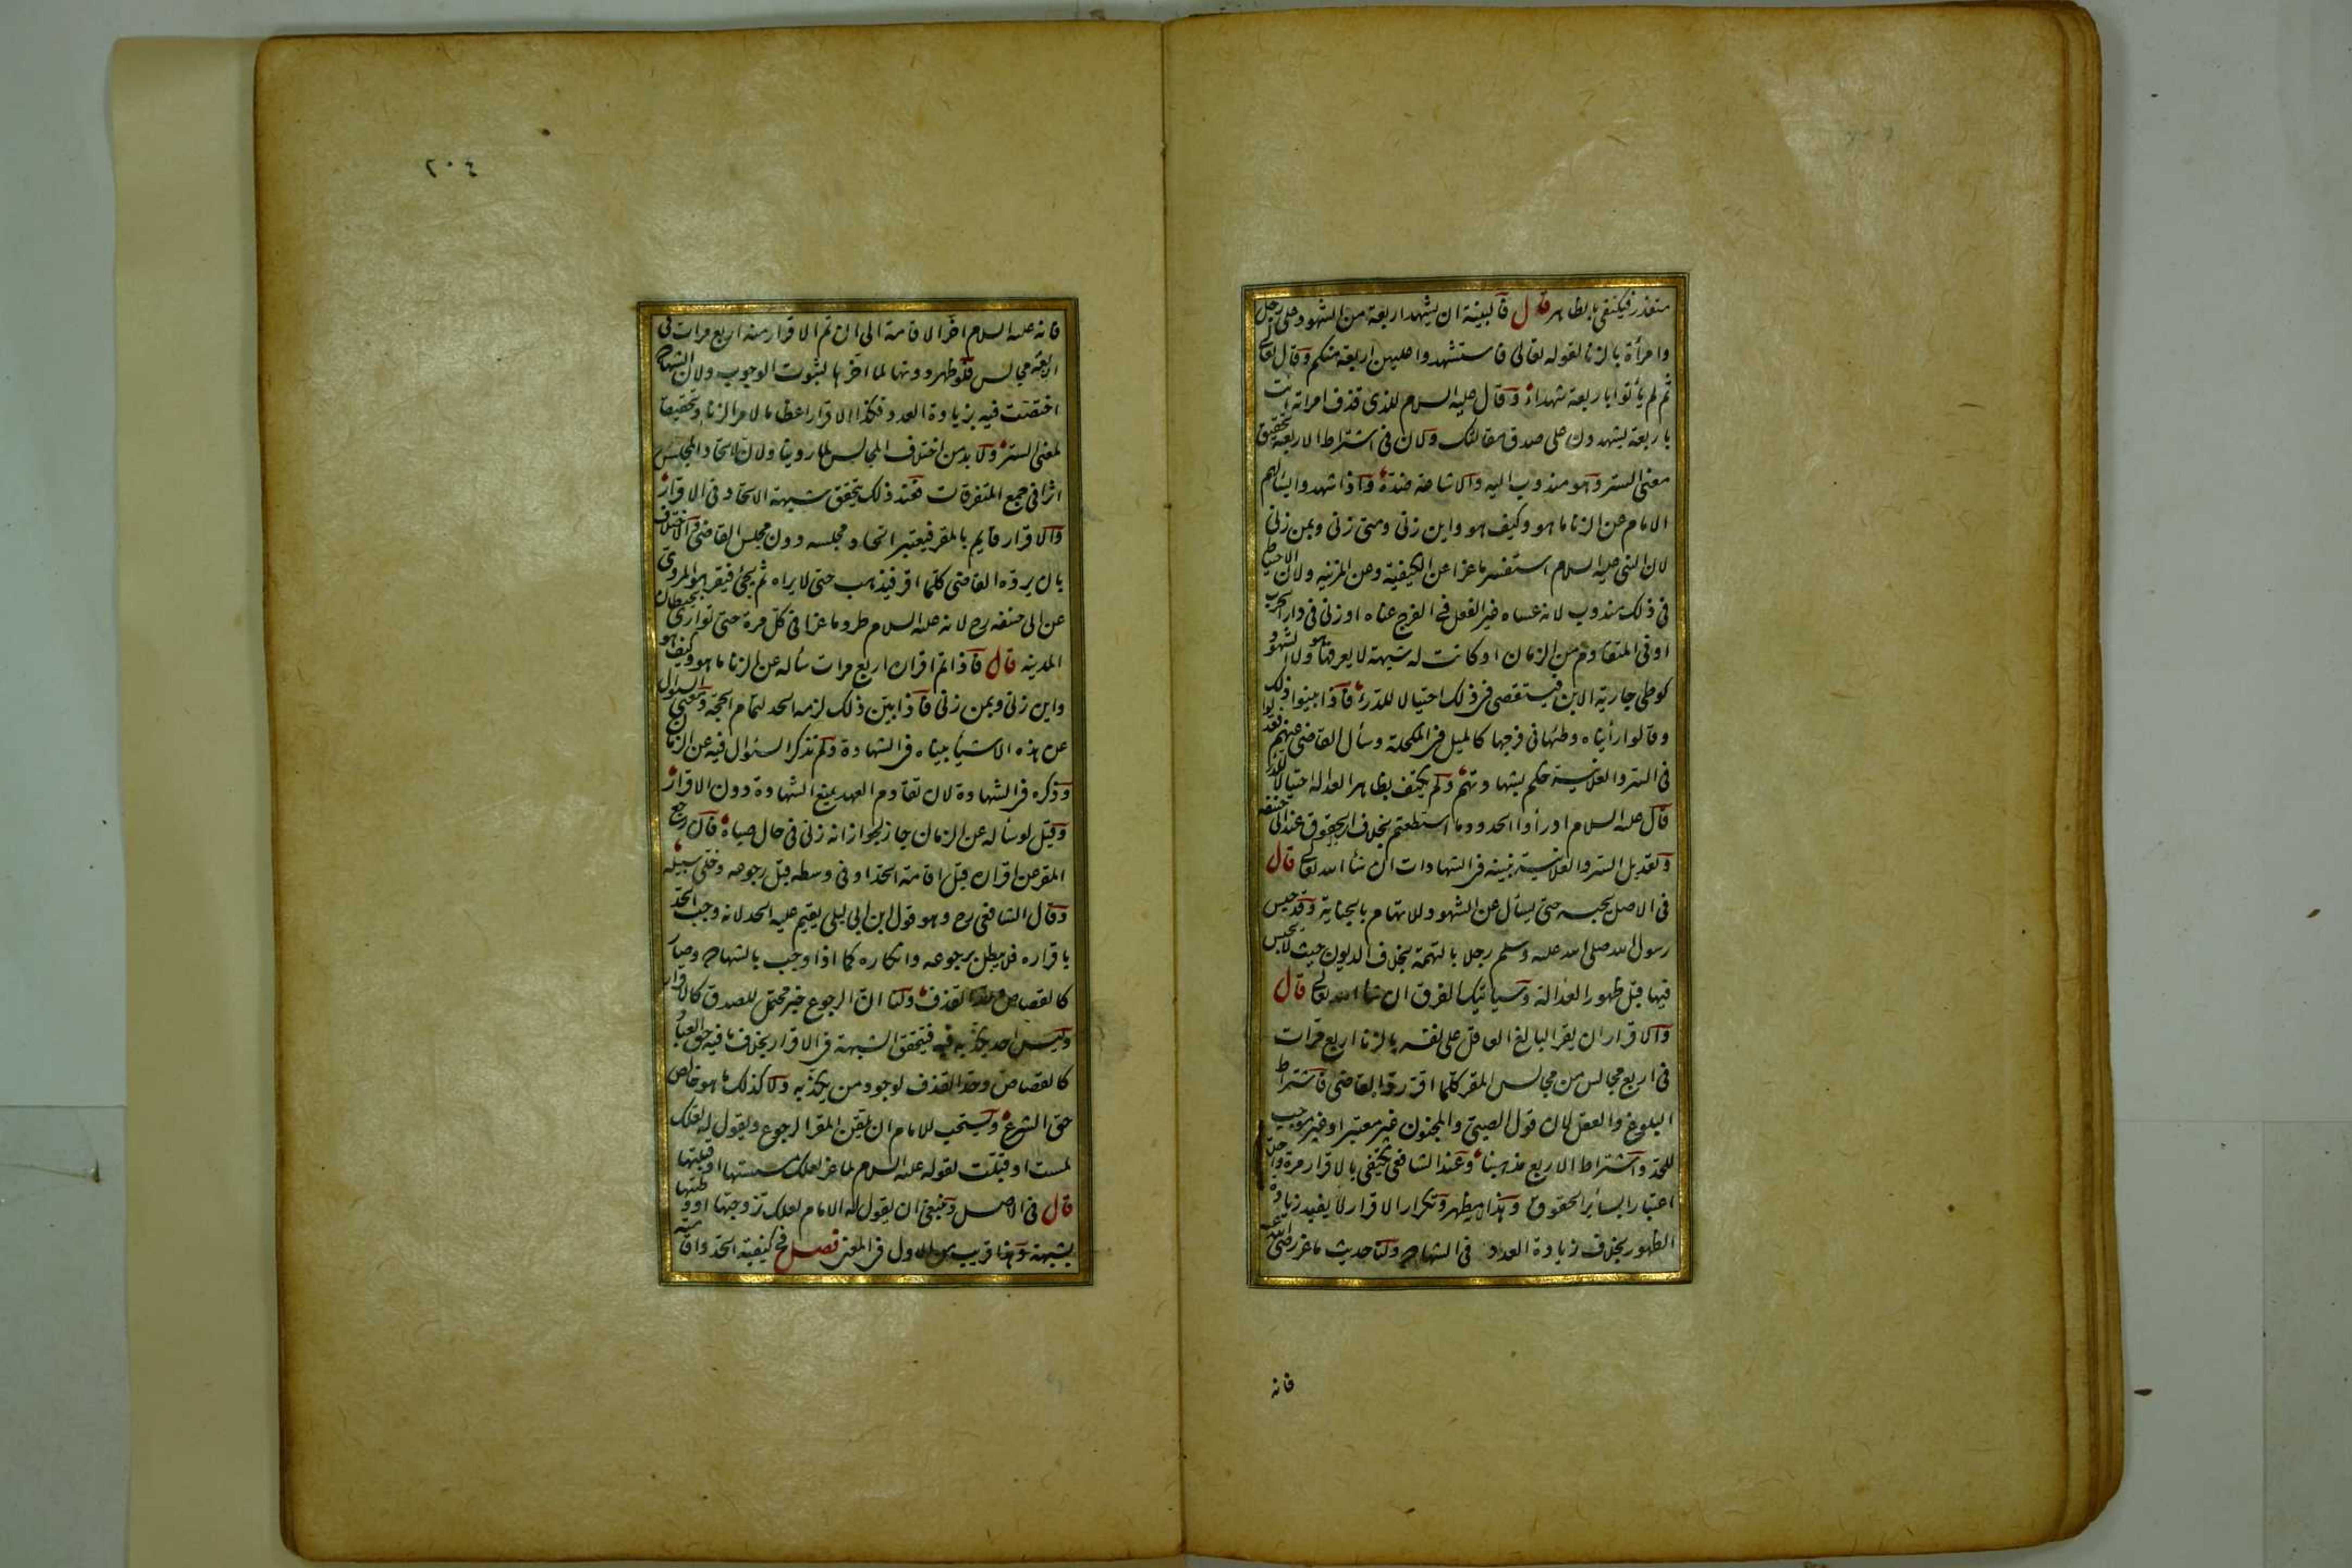 متعذر فيكتفى بالظاهر قال فالبينة ان يشهد اربعة من الشهود على رجل
وامرأة بالزنا لقوله تعالى فاستشهدوا عليهن اربعة منكم وقال تعالى
ثم لم يأتوا باربعة شهداء وقال عليه السلام للذي قذف امراته ائت
باربعة يشهدون على صدق مقالتك ولان فى اشتراط الاربعة تحقيق
معنى الستر وهو مندوب اليه والاشاعة ضده واذا شهدوا يسألهم
الامام عن الزنا ما هو وكيف هو واين زنى ومتى زنى وبمن زنى
لان النبى عليه السلام استفسر ماعزا عن الكيفية وعن المزنية ولان الاحتياط
فى ذلك مندوب لانه عساه غير الفعل فى الفرج عناه او زنى فى دار الحرب
او فى المتقادم من الزمان او كانت له شبهة لا يعرفها هو ولا الشهود
كوطى جارية الابن فيستقصى فى ذلك احتيالا للدرء فاذا بينوا ذلك
وقالوا رأيناه وطئها فى فرجها كالميل فى المكحلة وسأل القاضى عنهم فعدلوا
فى السر والعلانية حكم بشهادتهم ولم يكتف بظاهر العدالة احتيالا للدرء
قال عليه السلام ادرأوا الحدود ما استطعتم بخلاف الحقوق عند ابى حنيفة
وتعديل السر والعلانية نبينه فى الشهادات ان شا الله تعالى قال
فى الاصل يحبسه حتى يسأل عن الشهود للاتهام بالجناية وقد حبس
رسول الله صلى الله عليه وسلم رجلا بالتهمة بخلاف الديون حيث لا يحبس
فيها قبل ظهور العدالة وسيأتيك الفرق ان شا الله تعالى قال
والاقرار ان يقر البالغ العاقل على نفسه بالزنا اربع مرات
فى اربع مجالس من مجالس المقر كلما اقر رده القاضى فاشتراط
البلوغ والعقل لان قول الصبى والمجنون غير معتبر او غير موجب
للحد واشتراط الاربع مذهبنا وعند الشافعى يكتفى بالاقرار مرة واحدة
اعتبارا بسائر الحقوق وهذا مظهر وتكرار الاقرار لا يفيد زيادة
الظهور بخلاف زيادة العدد فى الشهادة ولنا حديث ماعز رضى الله عنه
فانه
٢٠٤
فانه عليه السلام اخر الاقامة الى ان تم الاقرار منه اربع مرات فى
اربعة مجالس فلو ظهر دونها لما اخرها لثبوت الوجوب ولان الشهادة
اختصت فيه بزيادة العدد فكذا الاقرار اعظاما لامر الزنا وتحقيقا
لمعنى الستر ولا بد من اختلاف المجالس لما روينا ولان لاتحاد المجلس
اثرا فى جمع المتفرقات فعند ذلك يتحقق شبهة الاتحاد فى الاقرار
والاقرار قايم بالمقر فيعتبر اتحاد مجلسه دون مجلس القاضى والاختلاف
بان يرده القاضى كلما اقر فيذهب حتى لا يراه ثم يجئ فيقر هو المروى
عن ابى حنيفه رح لانه عليه السلام طرد ماعزا فى كل مرة حتى توارى بحيطان
المدينه قال فاذا تم اقراره اربع مرات سأله عن الزنا ما هو وكيف هو
واين زنى وبمن زنى فاذا بين ذلك لزمه الحد لتمام الحجة ومعنى السؤال
عن هذه الاشيأ بيناه فى الشهادة ولم نذكر السئوال فيه عن الزمان
وذكره فى الشهادة لان تقادم العهد يمنع الشهادة دون الاقرار
وقيل لو سأله عن الزمان جاز لجواز انه زنى فى حال صباه فان رجع
المقر عن اقراره قبل اقامة الحد او فى وسطه قبل رجوعه وخلى سبيله
وقال الشافعى رح وهو قول ابن ابى ليلى يقيم عليه الحد لانه وجب الحد
باقراره فلا يبطل برجوعه وانكاره كما اذا وجب بالشهادة وصار
كالقصاص وحد القذف ولنا ان الرجوع خبر محتمل للصدق كالاقرار
وليس احد يكذبه فيه فيتحقق الشبهة فى الاقرار بخلاف ما فيه حق العباد
كالقصاص وحد القذف لوجود من يكذبه ولا كذلك ما هو خالص
حق الشرع ويستحب للامام ان يلقن المقر الرجوع ويقول له لعلك
لمست او قبلت لقوله عليه السلام لماعز لعلك مسستها او قبلتها
قال فى الاصل وينبغى ان يقول له الامام لعلك تزوجتها او وطئتها
بشبهة وهذا قريب من الاول فى المعنى فصل فى كيفية الحد واقامته